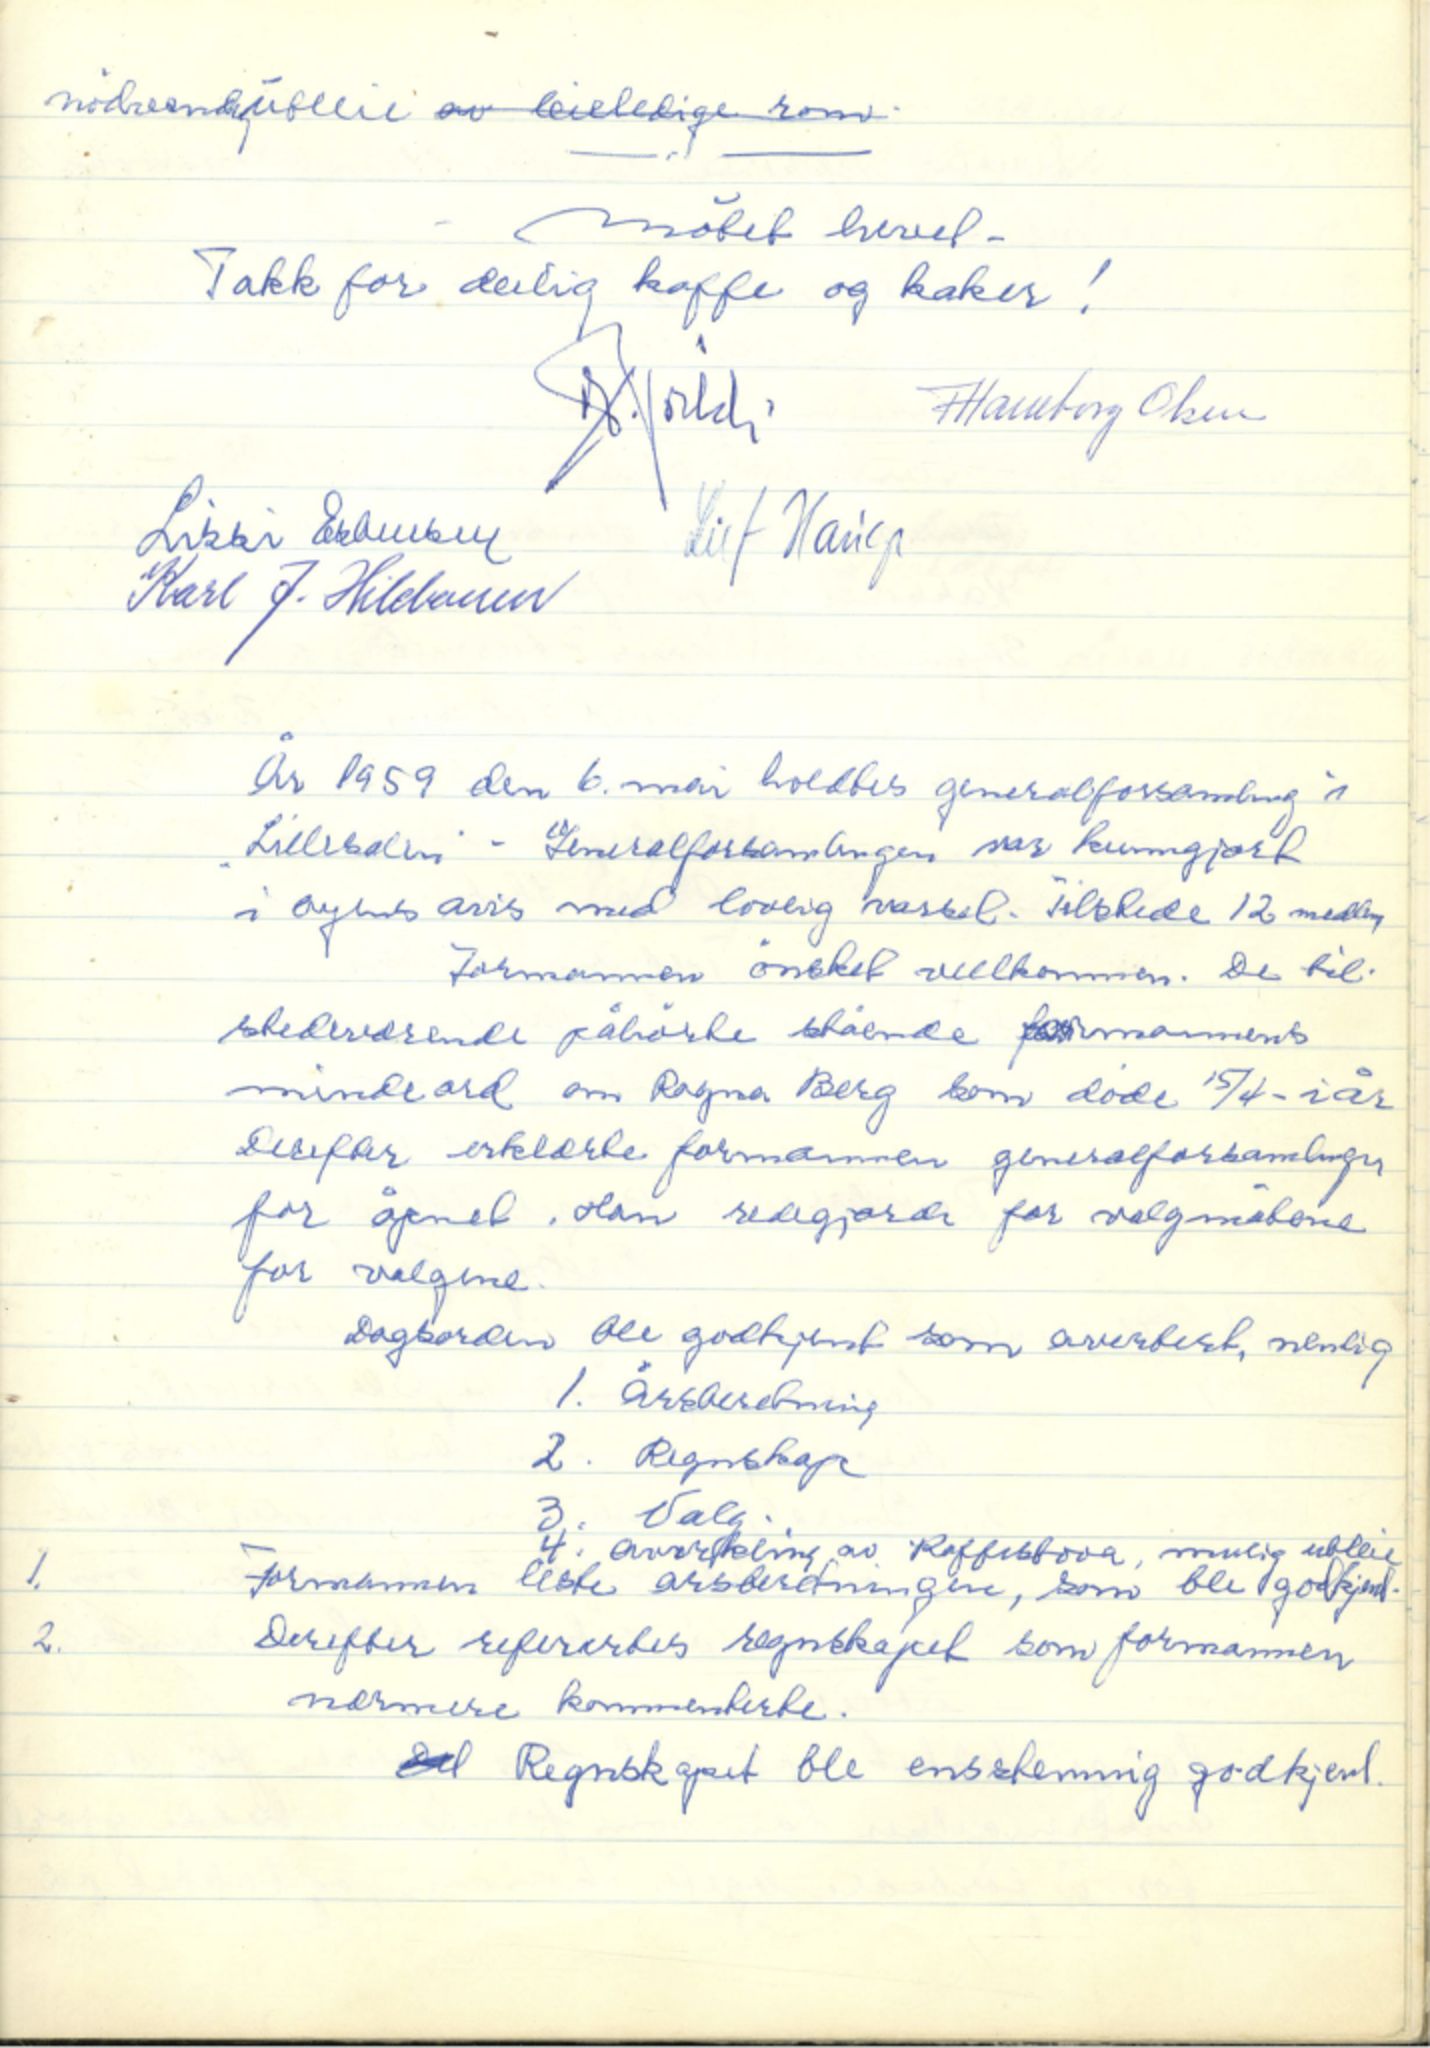 nödvendig utleie av leieledige rom.
Mötet hevet -
Takk for deilig kaffe og kaker!
Hamborg Olsen
Lissi Esbensen Leif Hauge
Karl J. Hildonen
År 1959 den 6. mai holdtes generalforsamling i
"Lillesalen" - Generalforsamlingen var kunngjort
i byens avis med lovlig varsel. Tilstede 12 medlem
Formannen önsket velkommen. De til-
stedeværende påhörte stående formannens
mindeord om Ragna Berg som döde 15/4 - i år
Derefter erklærte formannen generalforsamlingen
for åpnet. Han redegjorde for valgmåtene
for valgene.
Dagsorden ble godkjent som avertert, nemlig
1. Årsberetning
2. Regnskap
3. Valg.
4. Avvikling av Kaffistova, mulig utleie
1. Formannen leste årsberetningene, som ble godkjent.
2. Derefter refertes regnskapet som formannen
nærmere kommenterte.
Det Regnskapet ble enstemmig godkjent.